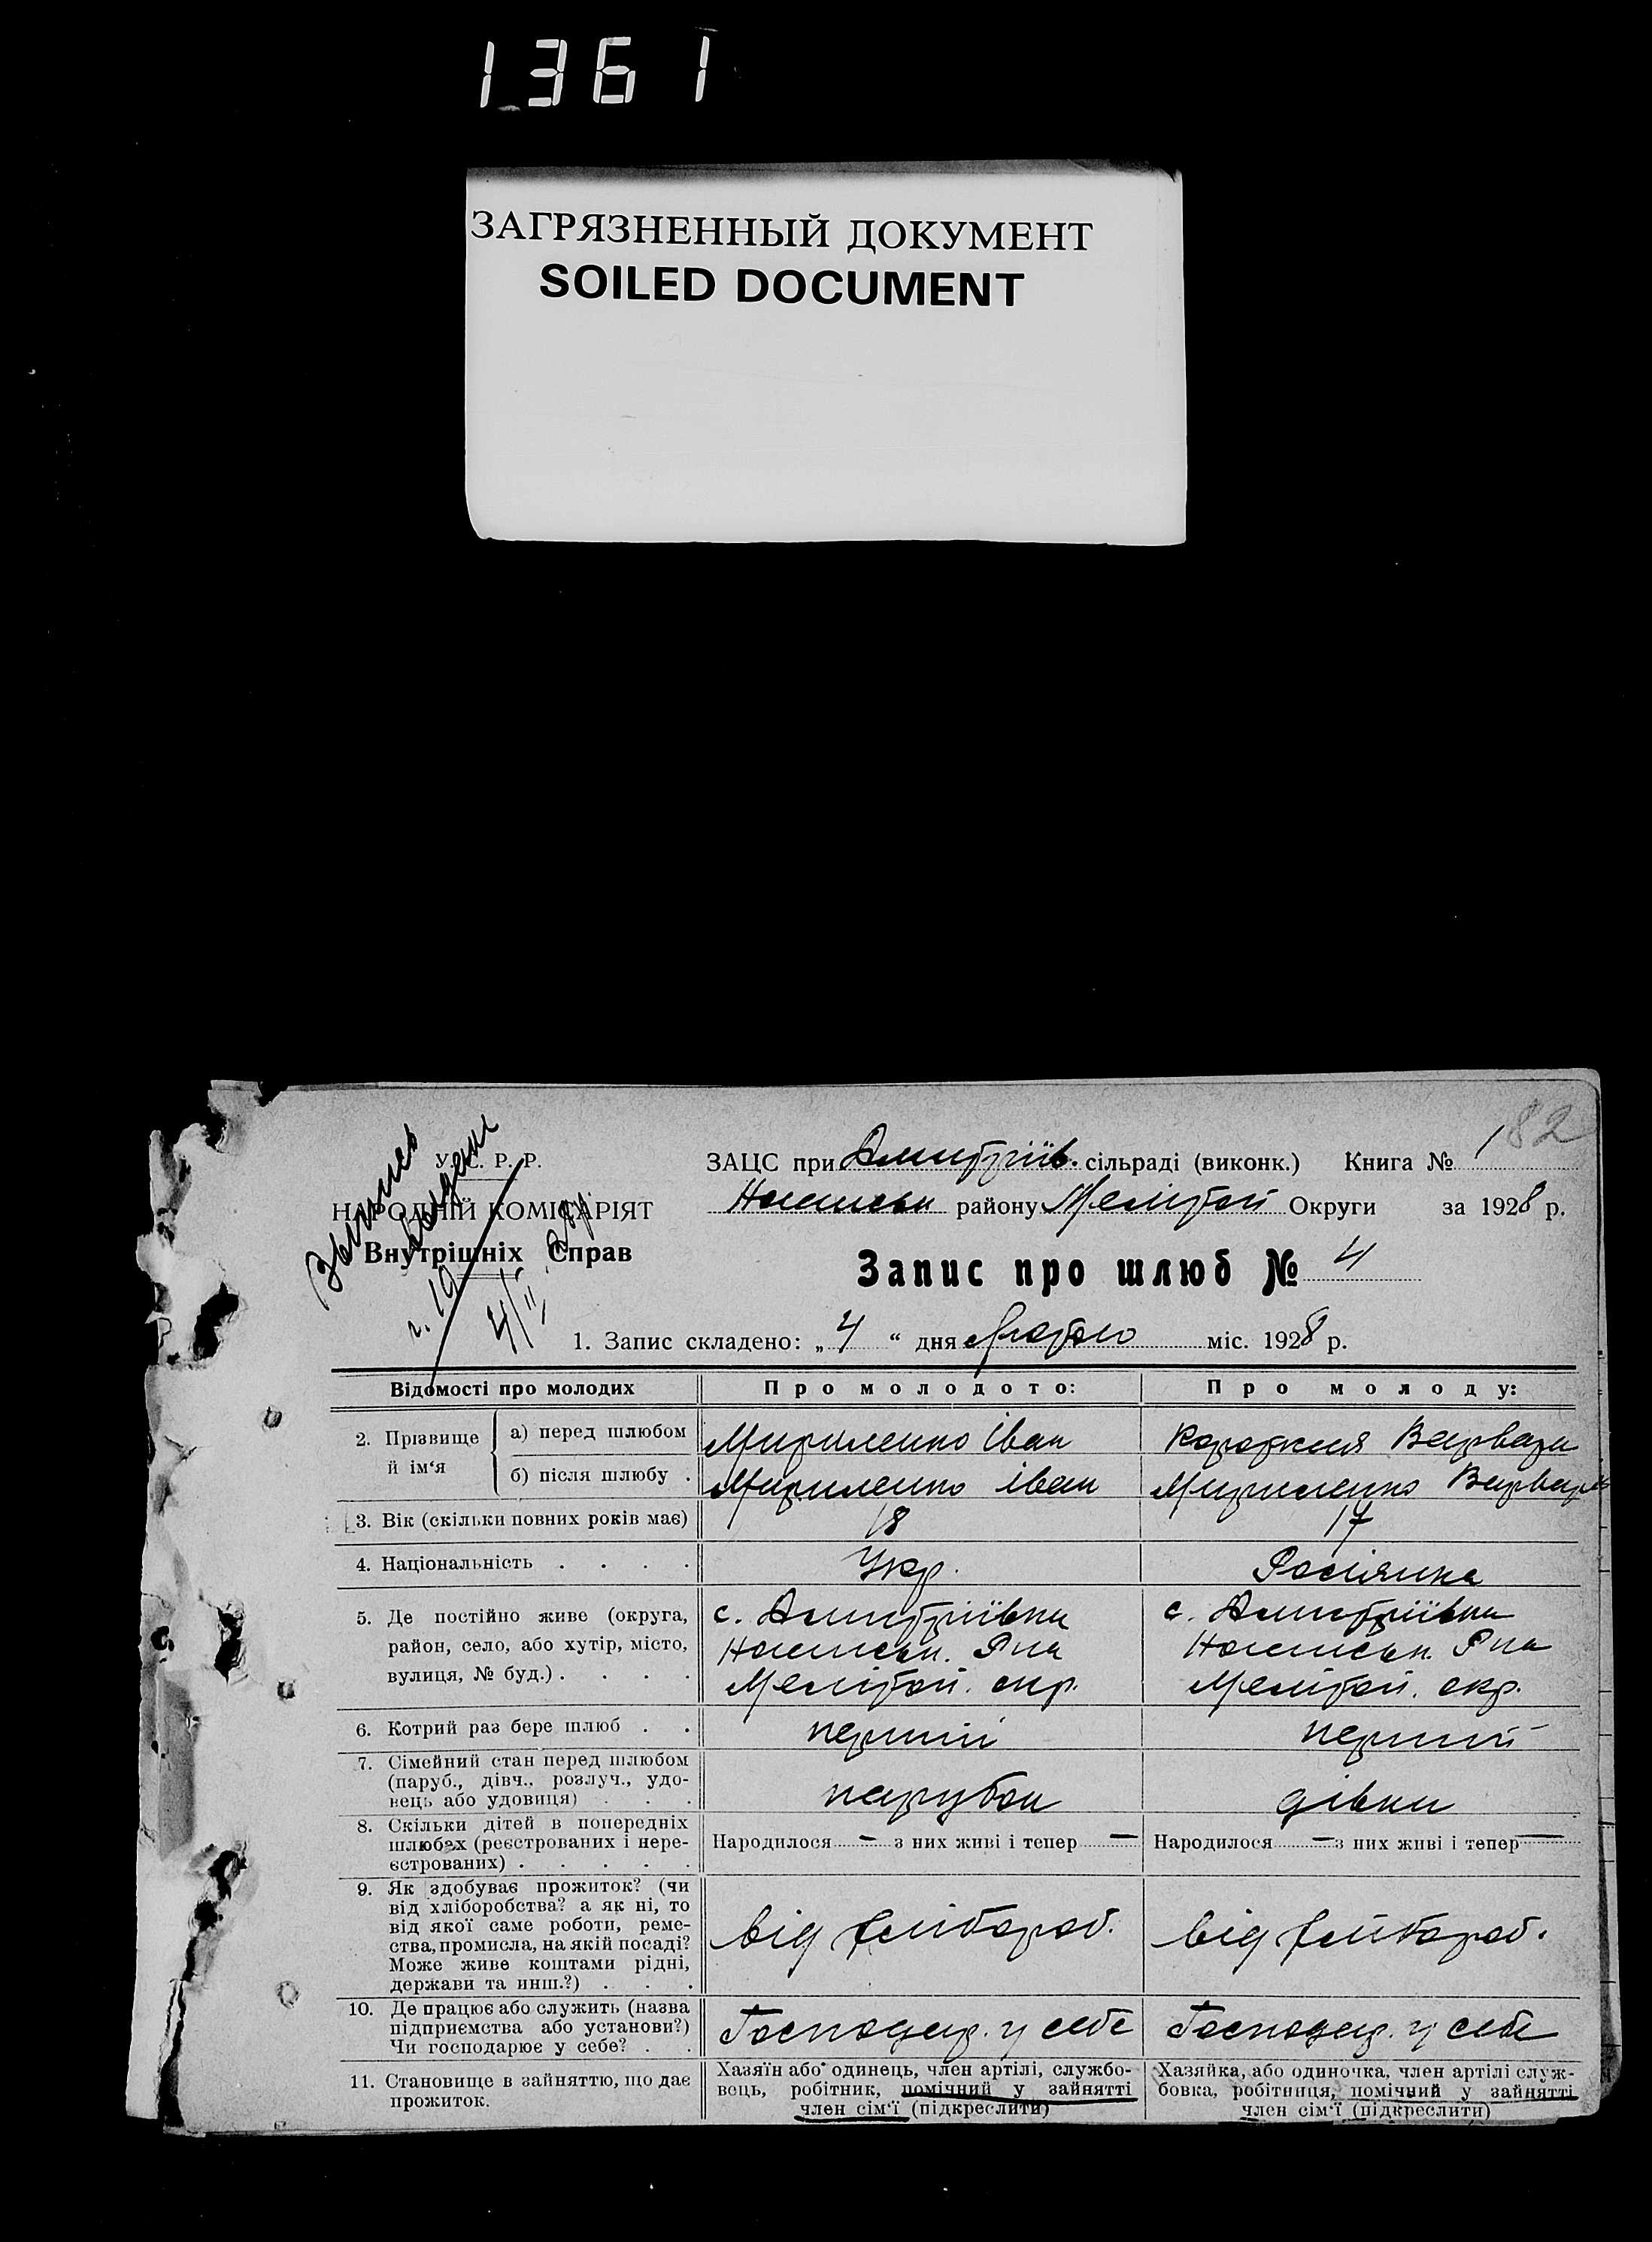 1361
ЗАГРЯЗНЕННЫЙ ДОКУМЕНТ
SOILED DOCUMENT
82
У. С. Р. Р.
НАРОДНІЙ КОМІСАРІЯТ
Внутрішніх Справ
ЗАЦС при Дмитріїв. сільраді (виконк.) Книга № 1
району Мелітоп Округи за 1928 р.
Запис про шлюб № 4
1. Запис складено: „4“ дня Лютого міс. 1928 р.
Відомості про молодих Про молодого: Про молоду:
2. Прізвище й ім‘я
а) перед шлюбом Мириленко Іван Варвара
б) після шлюбу . Мириленко Іван Мириленко Варвара
3. Вік (скільки повних років має) 18 17
4. Національність . . . . Укр. Росіянка
5. Де постійно живе (округа, с. Дмитріївка с. Дмитріївка
район, село, або хутір, місто, Р-на Р-на
вулиця, № буд.) . . . . Мелітоп. окр. Мелітоп. окр.
6. Котрий раз бере шлюб . . перший перший
7. Сімейний стан перед шлюбом
(паруб., дівч., розлуч., удо-
вець або удовиця) . . . парубок дівка
8. Скільки дітей в попередніх
шлюбах (реєстрованих і нере- Народилося — з них живі і тепер — Народилося — з них живі і тепер —
єстрованих) . . . . .
9. Як здобуває прожиток? (чи
від хліборобства? а як ні, то
від якої саме роботи, реме- від хлібороб. від хлібороб.
ства, промисла, на якій посаді?
Може живе коштами рідні,
держави та инш.?) . . .
10. Де працює або служить (назва
підприємства або установи?) Господар. у себе Господар. у себе
Чи господарює у себе? . .
11. Становище в зайняттю, що дає
прожиток.
Хазяїн або одинець, член артілі, службо-
вець, робітник, помічний у зайнятті
член сім‘ї (підкреслити)
Хазяйка, або одиночка, член артілі служ-
бовка, робітниця, помічний у зайнятті
член сім‘ї (підкреслити)